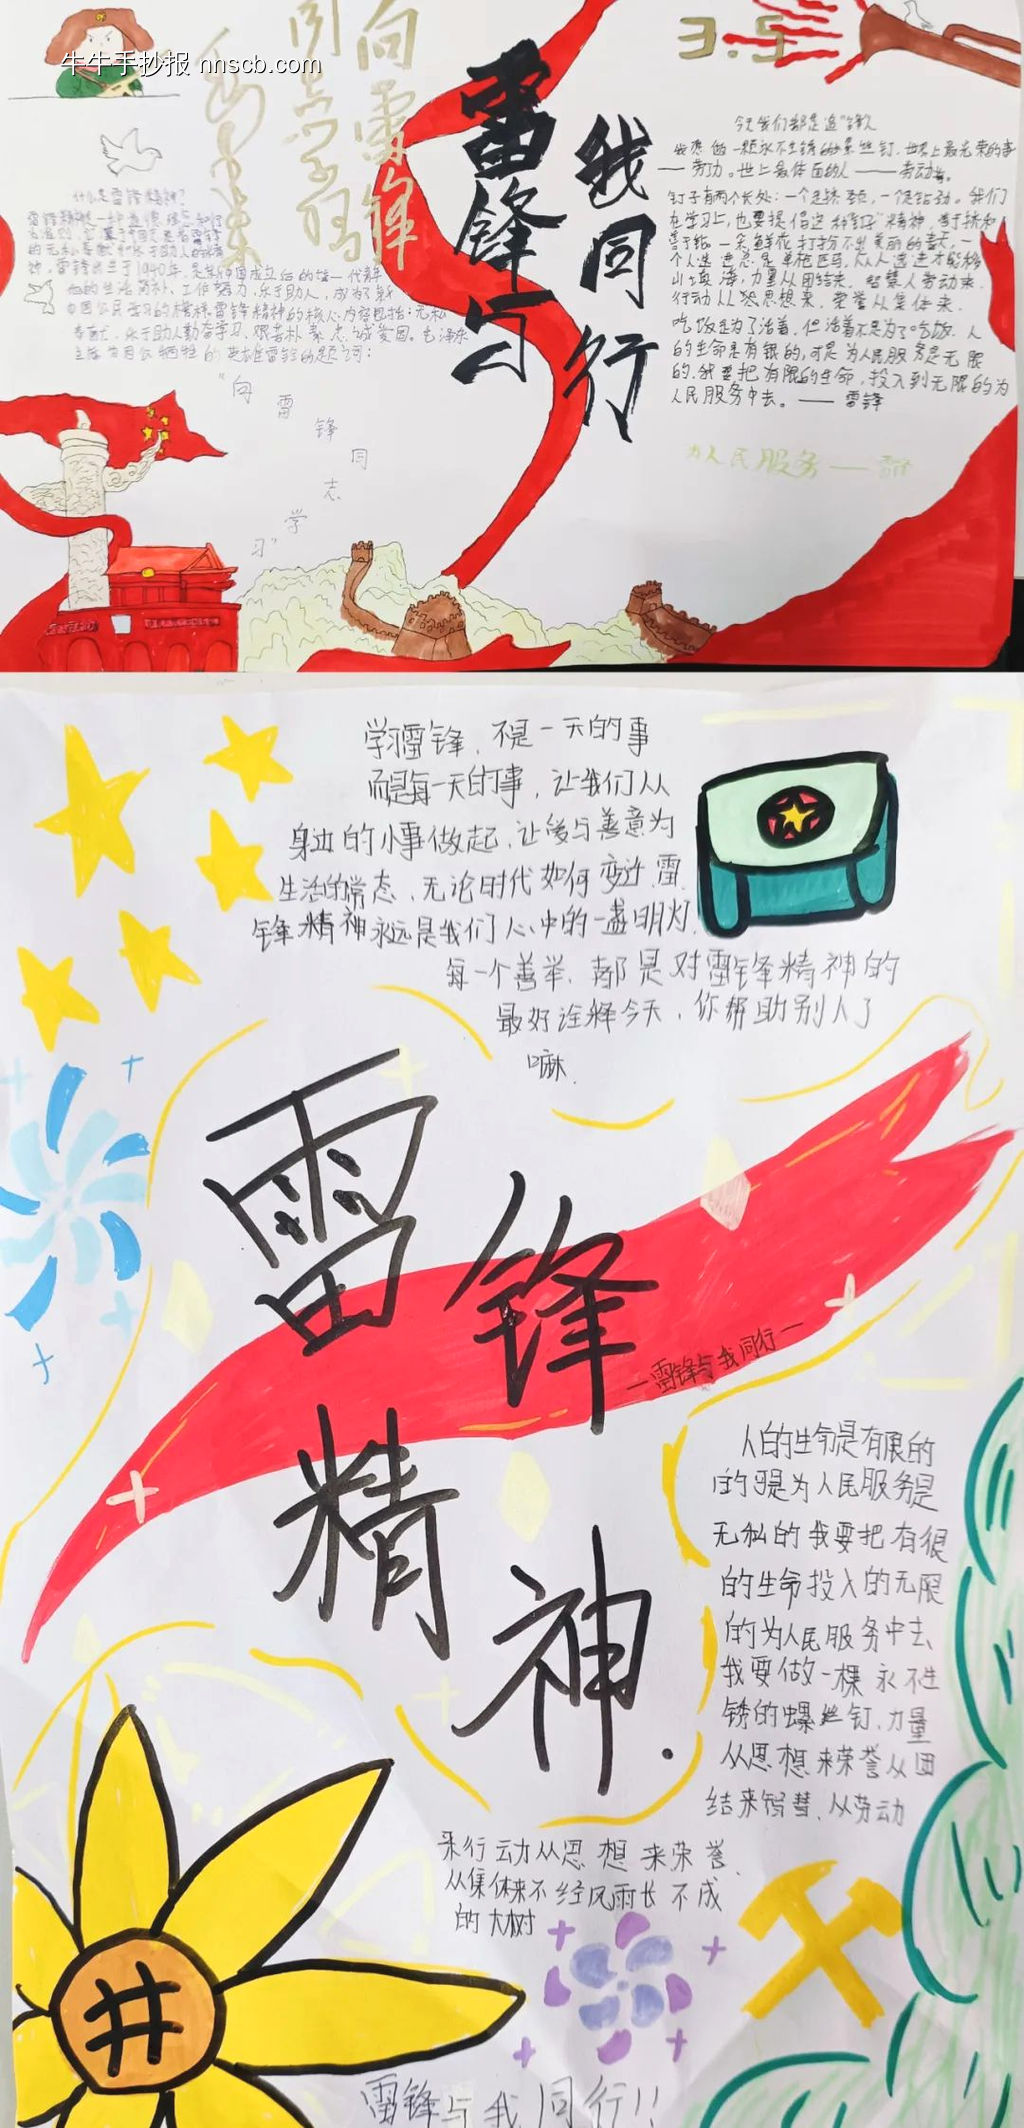 牛牛手抄报 nnscb.com
向雷锋
同志学习
3.5
雷锋与
我同行
什么是雷锋精神?
中国公民学习的楷模.雷锋精神的核心内容包括:无私
"向
雷
锋
同
志
学
习"
今天我们都是追"锋"人
一颗永不生锈的螺丝钉.世界上最光荣的事
——劳功。世上最体面的人——劳动者。
钉子有两个长处:一个是挤劲,一个是钻劲。我们
在学习上,也要提倡这种"钉子"精神,善于挤和
善于钻.一朵鲜花打扮不出美丽的春天,一
个人先进总是单枪匹马,众人先进才能移
山填海,力量从团结来,智慧从劳动来.
行动从思想来,荣誉从集体来.
吃饭是为了活着,但活着不是为了吃饭.人
的生命是有限的,可是为人民服务是无限
的.我要把有限的生命,投入到无限的为
人民服务中去。——雷锋
为人民服务——雷锋
学习雷锋、不是一天的事
而是每一天的事,让我们从
身边的小事做起,让爱与善意为
生活的常态、无论时代如何变迁.雷
锋精神永远是我们心中的一盏明灯.
每一个善举、都是对雷锋精神的
最好诠释今天,你帮助别人了
嘛.
雷
锋
—雷锋与我同行—
精
神.
人的生命是有限的
的可是为人民服务是
无私的我要把有很
的生命投入的无限
的为人民服务中去、
我要做一棵永不生
锈的螺丝钉、力量
从思想来荣誉从团
结来智慧、从劳动
来行动从思想来荣誉、
从集体来不经风雨长不成
的大树
井
雷锋与我同行!!